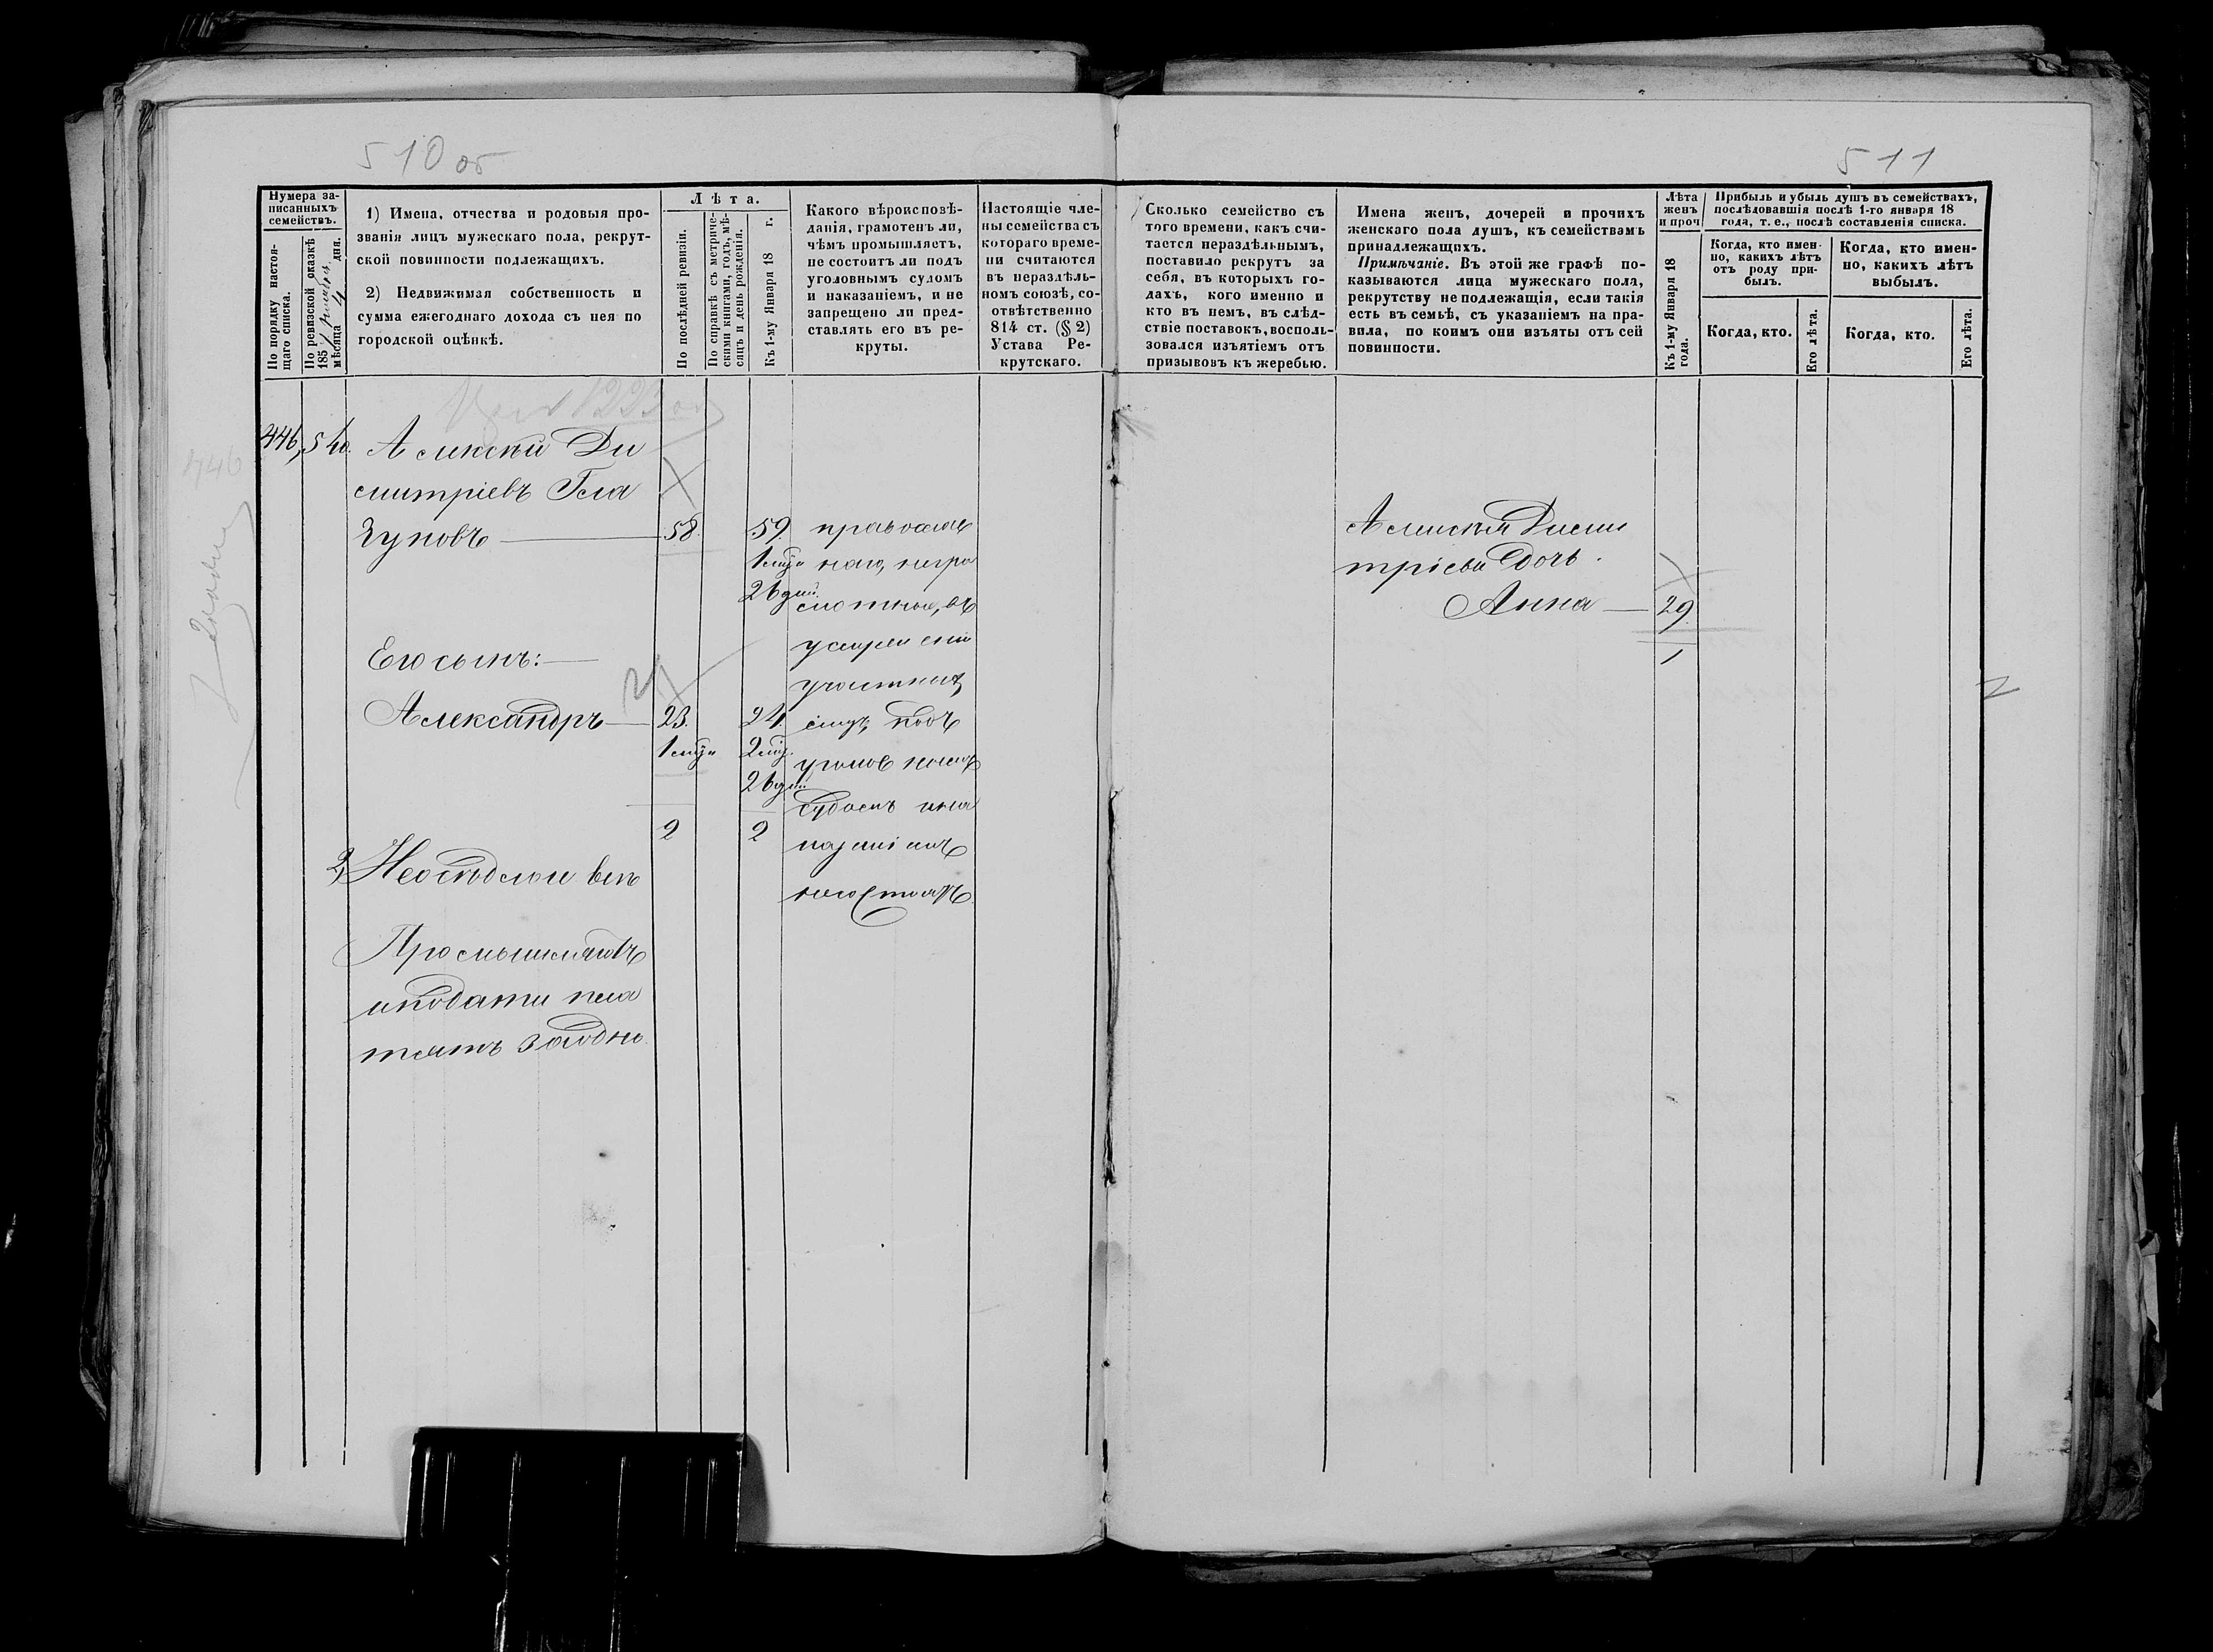 510 об
511
Нумера за-
писанныхъ
семействъ.
По порядку настоя-
щаго списка.
По ревизской сказкѣ
185
мѣсяца 4 дня.
1) Имена, отчества и родовыя про-
званія лицъ мужескаго пола, рекрут-
ской повинности подлежащихъ.
2) Недвижимая собственность и
сумма ежегоднаго дохода съ нея по
городской оцѣнкѣ.
Лѣта.
По послѣдней ревизіи.
По справкѣ съ метриче-
скими книгами, годъ, мѣ-
сяцъ и день рожденія.
Къ 1-му Января 18 г.
Какого вѣроисповѣ-
данія, грамотенъ ли,
чѣмъ промышляетъ,
не состоитъ ли подъ
уголовнымъ судомъ
и наказаніемъ, и не
запрещено ли пред-
ставлять его въ ре-
круты.
Настоящіе чле-
ны семейства съ
котораго време-
ни считаются
въ нераздѣль-
номъ союзѣ, со-
отвѣтственно
814 ст. (§ 2)
Устава Ре-
крутскаго.
Сколько семейство съ
того времени, какъ счи-
тается нераздѣльнымъ,
поставило рекрутъ за
себя, въ которыхъ го-
дахъ, кого именно и
кто въ немъ, въ слѣд-
ствіе поставокъ, восполь-
зовался изъятіемъ отъ
призывовъ къ жеребью.
Имена женъ, дочерей и прочихъ
женскаго пола душъ, къ семействамъ
принадлежащихъ.
Примѣчаніе. Въ этой же графѣ по-
казываются лица мужескаго пола,
рекрутству не подлежащія, если такія
есть въ семьѣ, съ указаніемъ на пра-
вила, по коимъ они изъяты отъ сей
повинности.
Лѣта
женъ
и проч
Къ 1-му Января 18
года.
Прибыль и убыль душъ въ семействахъ,
послѣдовавшія послѣ 1-го января 18
года, т. е., послѣ составленія списка.
Когда, кто имен-
но, какихъ лѣтъ
отъ роду при-
былъ.
Когда, кто имен-
но, какихъ лѣтъ
выбылъ.
Когда, кто.
Его лѣта.
Когда, кто.
Его лѣта.
446
446, 540. Алексѣй Ди
митріевъ Гла
зуновъ 58. 59.
1 мѣ
26 дни.
Его сынъ:
Александръ 23. 24.
1 мѣ 2 мѣ
26 дни
2 2
православ
наго, негра
мотные, въ
подъ
уголовнымъ
судомъ и на
казаніемъ
несостоятъ
2, Неосѣдлой
Промышляютъ
и подати пла
тятъ заодно
Алексѣя Дими
тріева дочь
Анна 29.
1